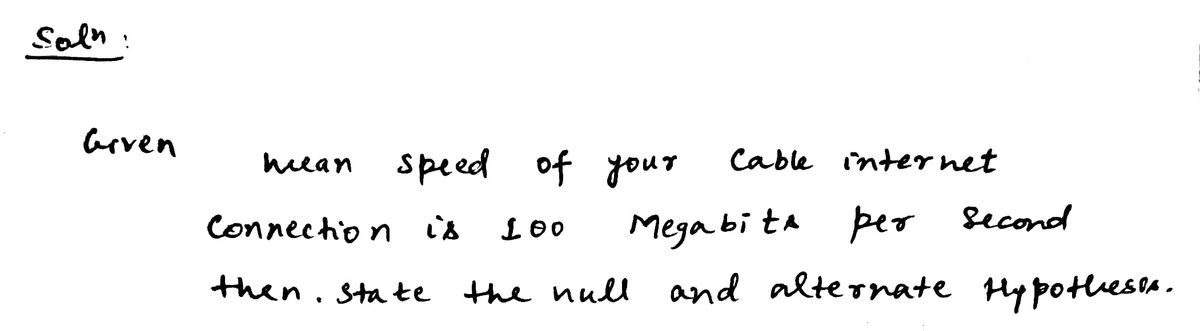 Soln :
Given
mean speed of your Cable internet
Connection is 100 Megabits per Second
then. state the null and alternate Hypothesis.